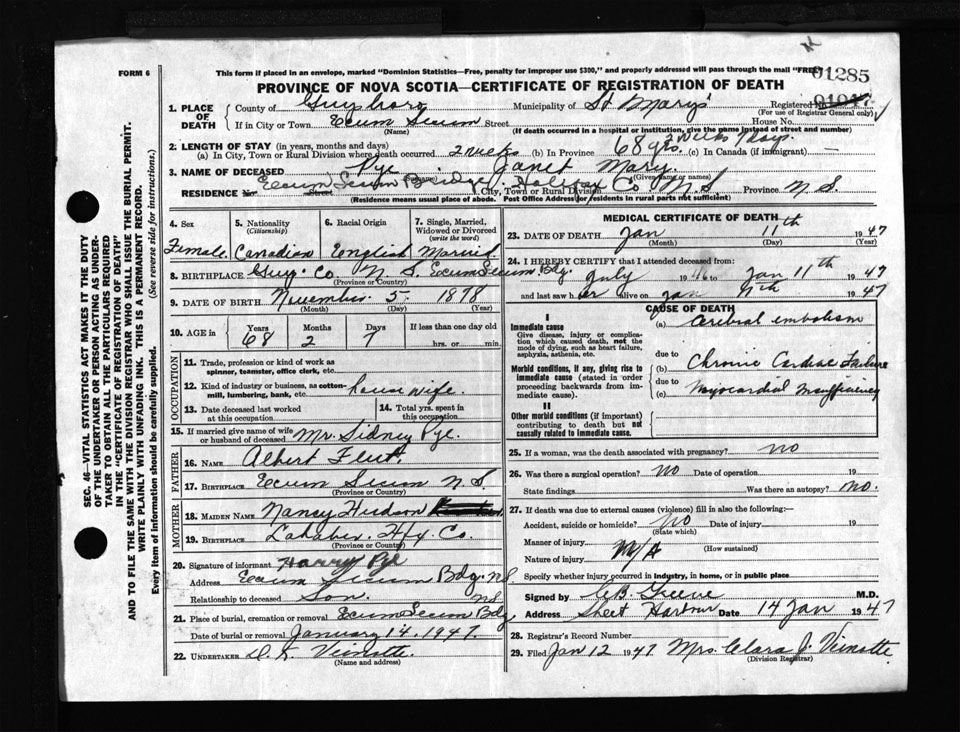 FORM 6
This form if placed in an envelope, marked "Dominion Statistics—Free, penalty for improper use $300," and properly addressed will pass through the mail "FREE"
01285
PROVINCE OF NOVA SCOTIA—CERTIFICATE OF REGISTRATION OF DEATH
1. PLACE OF DEATH
County of Guysboro Municipality of St Mary's Registered No. 01047
(For use of Registrar General only)
If in City or Town Ecum Secum Street House No.
(Name) (If death occurred in a hospital or institution, give the name instead of street and number)
2. LENGTH OF STAY (in years, months and days)
(a) In City, Town or Rural Division where death occurred 2 weeks (b) In Province 68 yrs. 2 weeks 7 days. (c) In Canada (if immigrant) —
3. NAME OF DECEASED Pye Janet Mary.
(Given name or names)
RESIDENCE No. Street Ecum Secum Bridge City, Town or Rural Division Halifax Co N.S. Province N S.
(Residence means usual place of abode. Post Office Address for residents in rural parts not sufficient)
4. Sex Female.
5. Nationality (Citizenship) Canadian
6. Racial Origin English
7. Single, Married, Widowed or Divorced (write the word) Married.
8. BIRTHPLACE Guy. Co. N S. Ecum Secum Bdg.
(Province or Country)
9. DATE OF BIRTH November 5 1878
(Month) (Day) (Year)
10. AGE in Years 68 Months 2 Days 7 If less than one day old hrs. or min.
OCCUPATION
11. Trade, profession or kind of work as spinner, teamster, office clerk, etc.
12. Kind of industry or business, as cotton-mill, lumbering, bank, etc. house wife.
13. Date deceased last worked at this occupation
14. Total yrs. spent in this occupation
15. If married give name of wife or husband of deceased Mr. Sidney Pye.
FATHER
16. NAME Albert Fleet.
17. BIRTHPLACE Ecum Secum N.S.
(Province or Country)
MOTHER
18. MAIDEN NAME Nancy Hudson
19. BIRTHPLACE Hfx Co.
(Province or Country)
20. Signature of informant Harry Pye
Address Ecum Secum Bdg. N.S
Relationship to deceased Son. N.S.
21. Place of burial, cremation or removal Ecum Secum Bdg
Date of burial or removal January 14. 1947.
22. UNDERTAKER Veinotte.
(Name and address)
MEDICAL CERTIFICATE OF DEATH
23. DATE OF DEATH Jan 11th 1947
(Month) (Day) (Year)
24. I HEREBY CERTIFY that I attended deceased from:
July 1946 to Jan 11th 1947
and last saw her alive on Jan 11th 1947
CAUSE OF DEATH
I
Immediate cause
Give disease, injury or complication which caused death, not the mode of dying, such as heart failure, asphyxia, asthenia, etc.
(a) Cerebral embolism
due to
Morbid conditions, if any, giving rise to immediate cause (stated in order proceeding backwards from immediate cause).
(b) Chronic Cardiac Failure
due to
(c) Myocardial Insufficiency
II
Other morbid conditions (if important) contributing to death but not causally related to immediate cause.
25. If a woman, was the death associated with pregnancy? no
26. Was there a surgical operation? no Date of operation 19
State findings Was there an autopsy? no.
27. If death was due to external causes (violence) fill in also the following:—
Accident, suicide or homicide? no Date of injury 19
(State which)
Manner of injury
(How sustained)
Nature of injury N/A
Specify whether injury occurred in industry, in home, or in public place
Signed by C.B. Greene M.D.
Address Sheet Harbour Date 14 Jan 1947
28. Registrar's Record Number
29. Filed Jan 12 1947 Mrs. Clara J. Veinotte
(Division Registrar)
SEC. 46—VITAL STATISTICS ACT MAKES IT THE DUTY
OF THE UNDERTAKER OR PERSON ACTING AS UNDER-
TAKER TO OBTAIN ALL THE PARTICULARS REQUIRED
IN THE "CERTIFICATE OF REGISTRATION OF DEATH"
AND TO FILE THE SAME WITH THE DIVISION REGISTRAR WHO SHALL ISSUE THE BURIAL PERMIT.
WRITE PLAINLY WITH UNFADING INK. THIS IS A PERMANENT RECORD.
Every item of information should be carefully supplied. (See reverse side for instructions.)